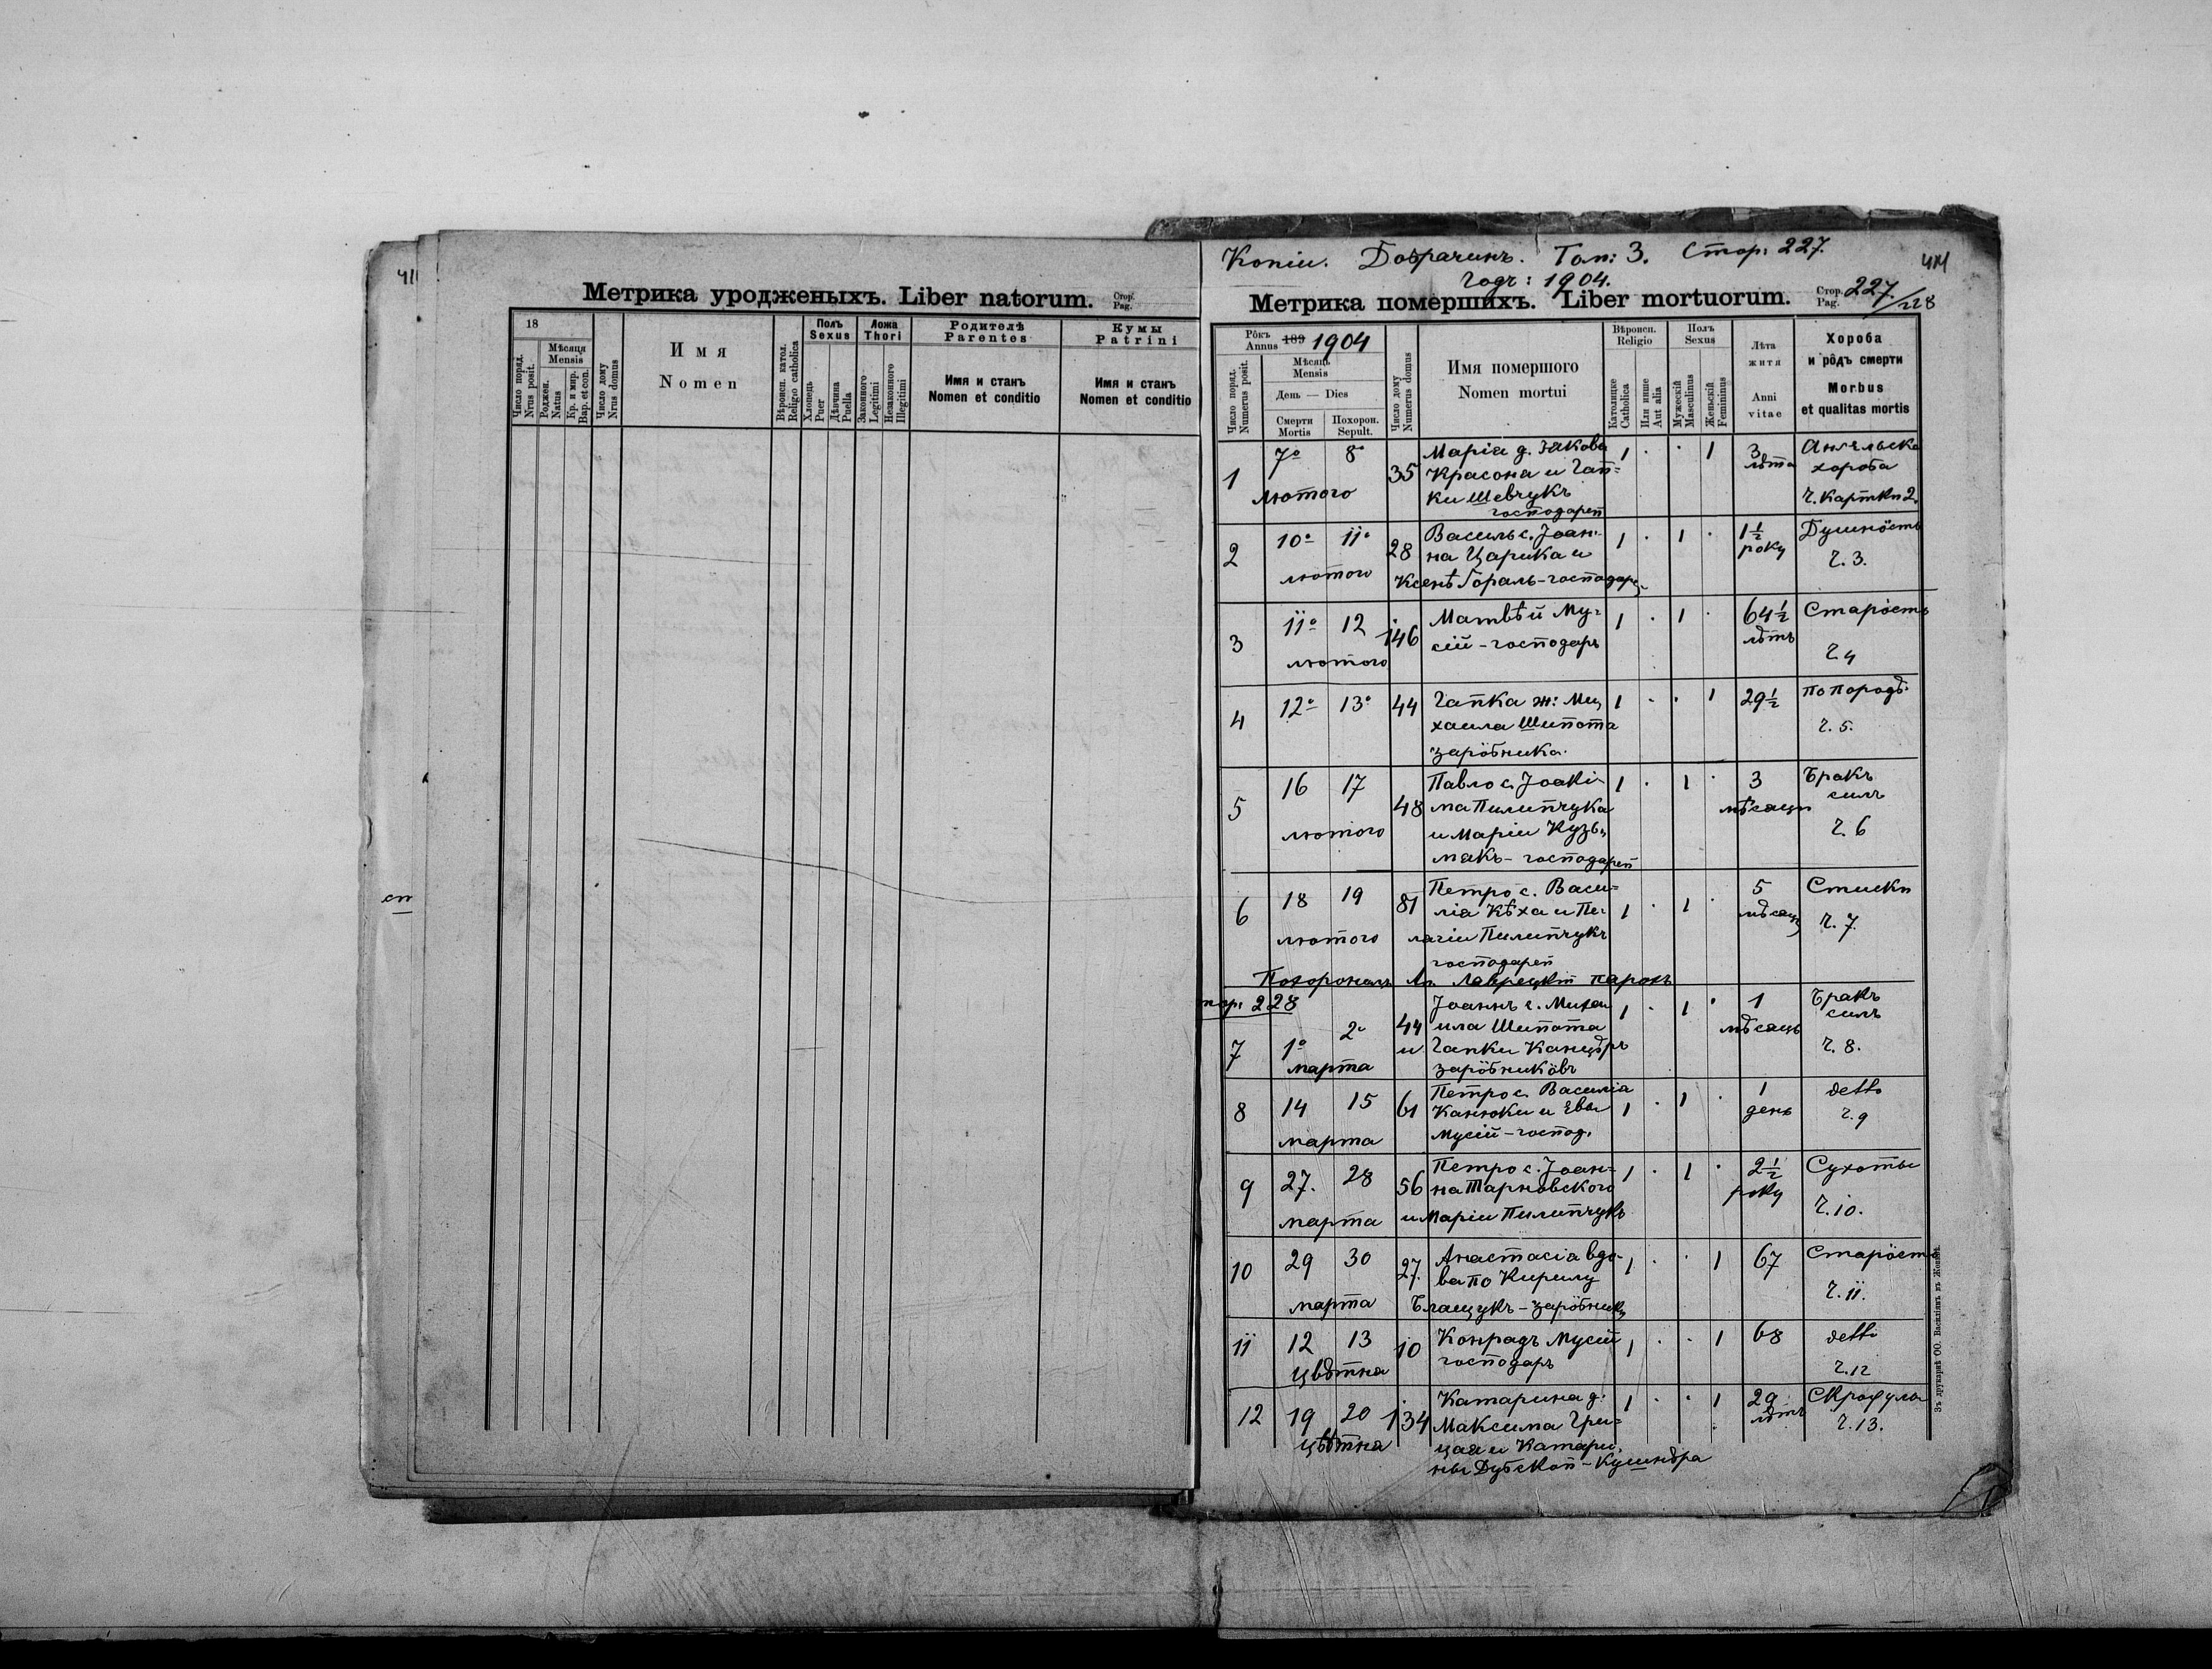 Метрика уродженыхъ. Liber natorum. Стор. Pag.
18
Число поряд. Nrus posit.
Мѣсяця Mensis
Роджен. Natus
Кр. и мир. Bap. et con.
Число дому Nrus domus
Имя
Nomen
Вѣроисп. катол. Religio catholica
Полъ Sexus
Хлопець Puer
Дѣвчина Puella
Ложа Thori
Законного Legitimi
Незаконного Illegitimi
Родителѣ
Parentes
Имя и станъ
Nomen et conditio
Кумы
Patrini
Имя и станъ
Nomen et conditio
Копіи. Добрачинъ. Том: 3. Стор: 227.
Годъ: 1904.
414
Метрика помершихъ. Liber mortuorum. Стор. Pag. 227/228
Рôкъ Annus 189 1904
Число поряд. Numerus posit.
Мѣсяць Mensis
День — Dies
Смерти Mortis
Похорон. Sepult.
Число дому Numerus domus
Имя помершого
Nomen mortui
Вѣроисп. Religio
Католицке Catholica
Или инше Aut alia
Полъ Sexus
Мужескій Masculinus
Женьскій Femininus
Лѣта
житя
Anni
vitae
Хороба
и рôдъ смерти
Morbus
et qualitas mortis
1 7º 8º лютого 35
Марія д. Якова
Красона и Гап=
ки Шевчукъ
господарей
1 . . 1 3 лѣта
хороба
Ч. Картки 2.
2 10º 11º лютого 28
Василь с. Јоан-
на Царика и
Ксенѣ Гораль-господар.
1 . 1 . 1½ року
Душнôсть
Ч. 3.
3 11º 12 лютого 146
Матвѣй Му-
сій - господарь
1 . 1 . 64½ лѣтъ
Старôсть
Ч. 4
4 12º 13º 44
Гапка ж: Ми,
хаила Шипота
зарôбника.
1 . . 1 29½
по породѣ.
Ч. 5.
5 16 17 лютого 48
Павло с. Јоакі-
ма Пилипчука
и Маріи Кузь,
макъ - господарей
1 . 1 . 3 мѣсяци
Бракъ
силъ
Ч. 6
6 18 19 лютого 81
Петро с. Васи=
лія Кѣха и Пе-
лагіи Пилипчукъ
господарей
1 . 1 . 5 мѣсяц
Стиски
Ч. 7.
Похоронилъ Лаврецкій парохъ
228
7 1º 2º марта 44
Јоаннъ с. Михаи
ила Шипота
и Гапки
зарôбникôвъ
1 . 1 . 1 мѣсяць
Бракъ
силъ
Ч. 8.
8 14 15 марта 61
Петро с. Василія
Канюки и Евы
Мусій - господ.
1 . 1 . 1 день
detto
Ч. 9
9 27. 28 марта 56
Петро с. Јоан-
на Тарновского
и Маріи Пилипчукъ
1 . 1 . 2½ року
Сухоты
Ч. 10.
10 29 30 марта 27.
Анастасія вдо-
ва по Кирилу
Блащукъ - зарôбнику
1 . . 1 67
Старôсть
Ч. 11.
11 12 13 цвѣтня 10
Конрадъ Мусій
господарь
1 . . 1 68
detto
Ч. 12
12 19 20 цвѣтня 134
Катарина д.
Максима Гри=
цая и Катари,
ны Дубской -
1 . . 1 29 лѣтъ
Скрофулы
Ч. 13.
Зъ друкарнѣ ОО. Василіянъ въ Жовквѣ.